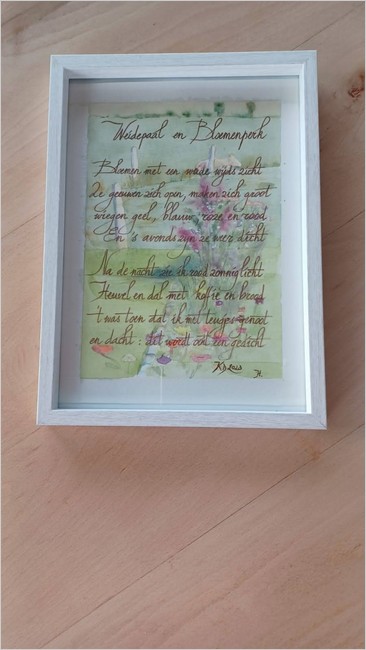 Weidepaal en Bloemenperk
Bloemen met een wade wijds zicht
Ze geeuwen zich open, maken zich groot
wiegen geel, blauw, roze en rood
En 's avonds zijn ze weer dicht
Na de nacht zie ik rood zonnig licht
Heuvel en dal met koffie en brood
't was toen dat ik met teugjes genoot
en dacht : dit wordt ooit een gedicht